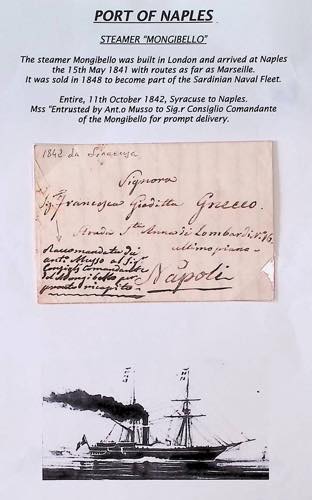 PORT OF NAPLES
STEAMER "MONGIBELLO"
The steamer Mongibello was built in London and arrived at Naples
the 15th May 1841 with routes as far as Marseille.
It was sold in 1848 to become part of the Sardinian Naval Fleet.
Entire, 11th October 1842, Syracuse to Naples.
Mss "Entrusted by Ant.o Musso to Sig.r Consiglio Comandante
of the Mongibello for prompt delivery.
1842 da Siracusa
Signora
Sig. Francesca Giuditta Greco.
Strada Sta Anna di Lombardi
ultimo piano
Raccomandata da
Anto. Musso al Sigr.
Consiglio Comandante
il Mongibello per
pronto ricapito
Napoli